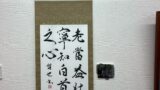 老當益壯
寧知白首
之心